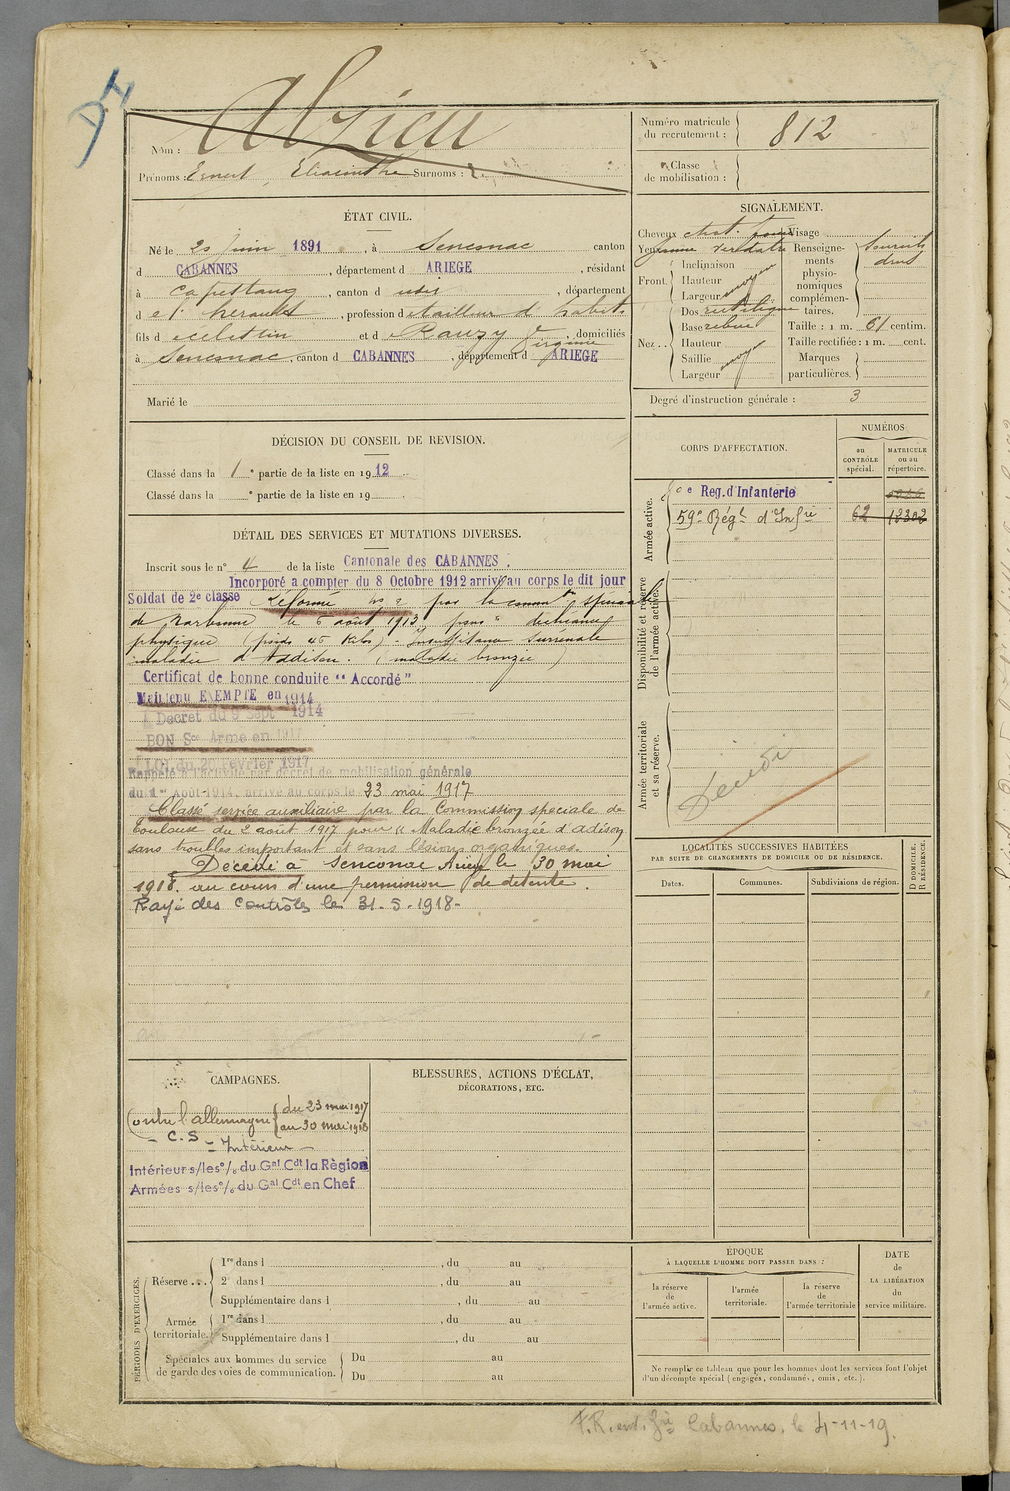 Nom : Alzieu
Prénoms : Ernest, Eliacinthe Surnoms :
Numéro matricule
du recrutement : 812
Classe
de mobilisation :
ÉTAT CIVIL.
Né le 20 Juin 1891, à Senesnac canton
d CABANNES, département d ARIEGE, résidant
à Capestang, canton d udis, département
d e l'hérault, profession d e tailleur d'habits
fils d e celestin et d e Rauzy Virginie, domiciliés
à Senesnac, canton d CABANNES, département d ARIEGE
Marié le
SIGNALEMENT.
Cheveux chat.
Yeux
Front.
Inclinaison
Hauteur
Largeur moyen
Nez..
Dos rectiligne
Base
Hauteur
Saillie
Largeur moyen
Visage
Renseigne-
ments
physio-
nomiques
complémen-
taires.
Sourcils
Taille : 1 m. 61 centim.
Taille rectifiée : 1 m. cent.
Marques
particulières.
Degré d'instruction générale : 3
DÉCISION DU CONSEIL DE REVISION.
Classé dans la 1e partie de la liste en 1912.
Classé dans la e partie de la liste en 19 .
CORPS D'AFFECTATION.
NUMÉROS
au
CONTRÔLE
spécial.
MATRICULE
ou au
répertoire.
Armée active.
e Reg. d'Infanterie
59e Régt d'Infrie 62 13302
Disponibilité et réserve
de l'armée active.
Armée territoriale
et sa réserve.
Décédé
DÉTAIL DES SERVICES ET MUTATIONS DIVERSES.
Inscrit sous le n° 4 de la liste Cantonale des CABANNES.
Incorporé a compter du 8 Octobre 1912 arrivé au corps le dit jour
Soldat de 2e classe Réformé no 2 par la comm.on spéciale
de Narbonne le 6 août 1913 pour "
physique (poids 45 kilos) - Insuffisance surrénale
maladie d'Addison. (maladie bronzée)
Certificat de bonne conduite "Accordé"
Maintenu EXEMPTE en 1914
Decret du 9 Sept 1914
BON Sce Arme en 1917
LOI du 20 Février 1917
Rappelé à l'activité par décret de mobilisation générale
du 1er Août 1914, arrivé au corps le 23 mai 1917
Classé service auxiliaire par la Commission spéciale de
Toulouse du 2 août 1917 pour "Maladie bronzée d'adison
sans troubles important et sans lésions organiques.
Décédé à Senconac Ariège le 30 mai
1918. au cours d'une permission de detente.
Rayé des contrôles le 31-5-1918-
LOCALITÉS SUCCESSIVES HABITÉES
PAR SUITE DE CHANGEMENTS DE DOMICILE OU DE RÉSIDENCE.
Dates.
Communes.
Subdivisions de région.
D DOMICILE.
R RÉSIDENCE.
CAMPAGNES.
Contre l'allemagne du 23 mai 1917
au 30 mai 1918
- C. S - Intérieur -
Intérieur s/les o/. du Gal Cdt la Région
Armées s/les o/. du Gal Cdt en Chef
BLESSURES, ACTIONS D'ÉCLAT,
DÉCORATIONS, ETC.
PÉRIODES D'EXERCICES.
Réserve ...
1re dans l , du au
2e dans l , du au
Supplémentaire dans l , du au
Armée
territoriale.
1re dans l , du au
Supplémentaire dans l , du au
Spéciales aux hommes du service
de garde des voies de communication.
Du au
Du au
ÉPOQUE
À LAQUELLE L'HOMME DOIT PASSER DANS :
la réserve
de
l'armée active.
l'armée
territoriale.
la réserve
de
l'armée territoriale
DATE
de
LA LIBÉRATION
du
service militaire.
Ne remplir ce tableau que pour les hommes dont les services font l'objet
d'un décompte spécial (engagés, condamnés, omis, etc.).
Cabannes, le 4-11-19.